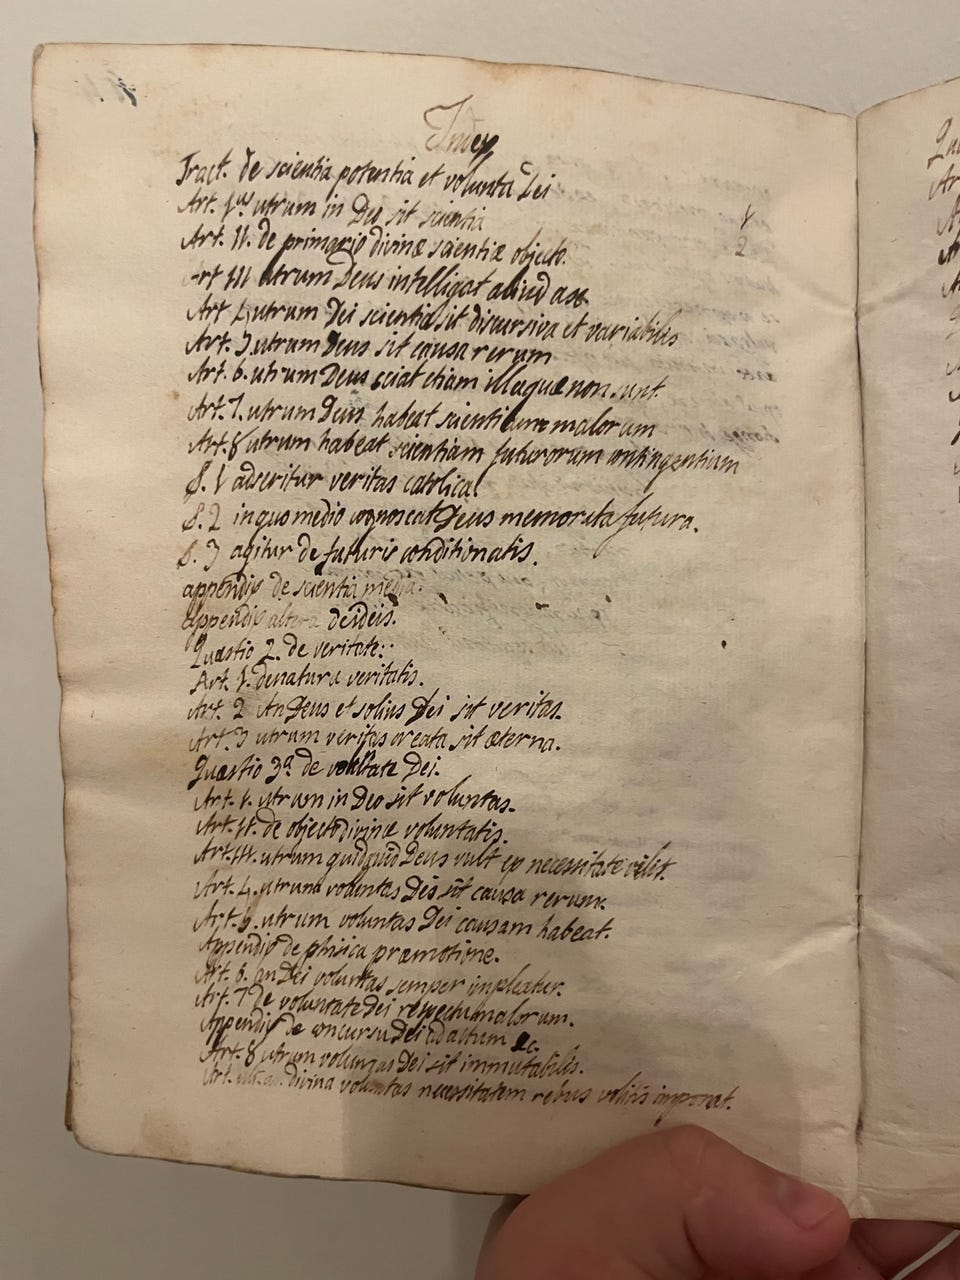 Index
Tract. de scientia potentia et volunta Dei
Art. 1us utrum in Deo sit scientia 1
Art. 11. de primario divinæ scientiæ objecto. 2
Art 111 utrum Deus intelligat aliud a se
Art 4 utrum Dei scientia sit discursiva et variabilis
Art. 5. utrum Deus sit causa rerum
Art. 6. utrum Deus sciat etiam illa quæ non sunt.
Art. 7. utrum Deus habeat scientiam malorum
Art. 8 utrum habeat scientiam futurorum contingentium
§. 1 adseritur veritas catolica
§. 2 in quo medio cognoscat Deus memorata futura.
§. 3 agitur de futuris conditionatis.
appendix de scientia media.
appendix altera de ideis.
Quæstio 2. de veritate:
Art. 1. de natura veritatis.
Art. 2 An Deus et solius Dei sit veritas.
Art. 3 utrum veritas creata sit æterna.
Quæstio 3a. de voltate Dei.
Art. 1. utrum in Deo sit voluntas.
Art. 11. de objecto divinæ voluntatis.
Art. 111. utrum quidquid Deus vult ex necessitate velit.
Art. 4. utrum voluntas Dei sit causa rerum.
Art. 5. utrum voluntas Dei causam habeat.
Appendix de phisica præmotione.
Art. 6. an Dei voluntas semper impleatur.
Art. 7 de voluntate Dei respectu malorum.
Appendix de concursu Dei ad actum &c.
Art. 8 utrum voluntas Dei sit immutabilis.
Art. ult. an divina voluntas necessitatem rebus volitis imponat.